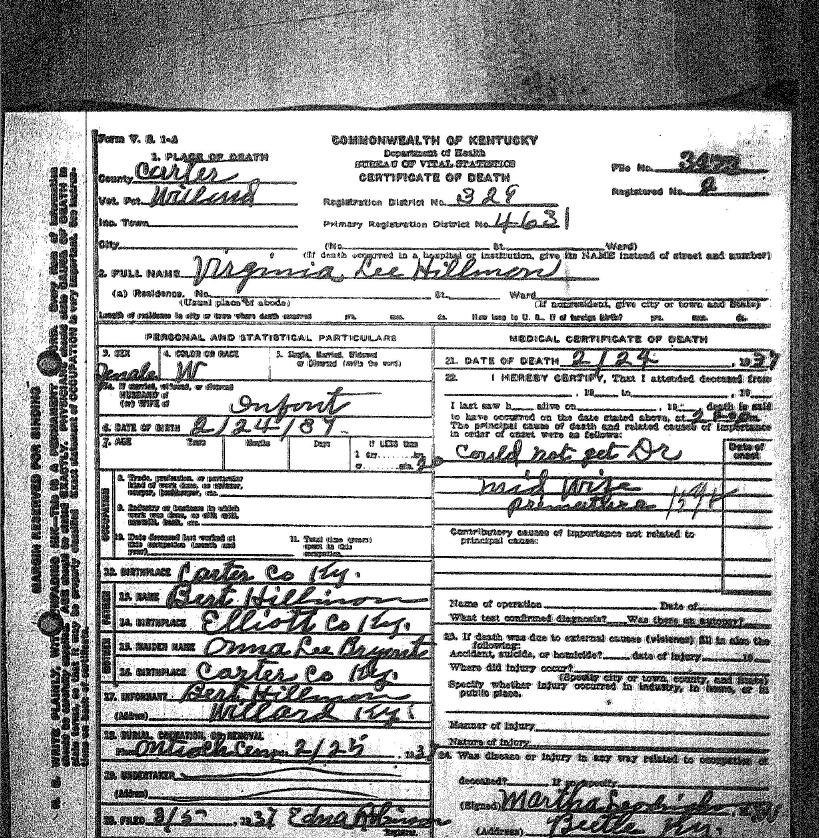 Form V. S. 1-A
COMMONWEALTH OF KENTUCKY
Department of Health
BUREAU OF VITAL STATISTICS
CERTIFICATE OF DEATH
File No.
Registered No. 2
1. PLACE OF DEATH
County Carter
Vot. Pct. Willard
Registration District No. 329
Inc. Town
Primary Registration District No. 4631
City (No. St. Ward)
(If death occurred in a hospital or institution, give its NAME instead of street and number)
2. FULL NAME Virginia Lee Hillmon
(a) Residence. No. St. Ward
(Usual place of abode) (If nonresident, give city or town and State)
Length of residence in city or town where death occurred yrs. mos. ds. How long in U. S., if of foreign birth? yrs. mos. ds.
PERSONAL AND STATISTICAL PARTICULARS
3. SEX 4. COLOR OR RACE 5. Single, Married, Widowed
or Divorced (write the word)
Female W
5a. If married, widowed, or divorced
HUSBAND of
(or) WIFE of
Infont
6. DATE OF BIRTH 2/24/37
7. AGE Years Months Days If LESS than
1 day
8. Trade, profession, or particular
kind of work done, as spinner,
sawyer, bookkeeper, etc.
9. Industry or business in which
work was done, as silk mill,
sawmill, bank, etc.
10. Date deceased last worked at
this occupation (month and
year)
11. Total time (years)
spent in this
occupation
12. BIRTHPLACE Carter Co Ky.
13. NAME Bert Hillmon
14. BIRTHPLACE Elliott Co Ky.
15. MAIDEN NAME Onna Lee Bryant
16. BIRTHPLACE Carter Co Ky.
17. INFORMANT Bert Hillmon
(Address) Willard Ky.
18. BURIAL, CREMATION, OR REMOVAL
Place Antioch Cem. 2/25, 1937
19. UNDERTAKER
(Address)
20. FILED 3/5 1937 Edna
Registrar.
MEDICAL CERTIFICATE OF DEATH
21. DATE OF DEATH 2/24, 1937
22. I HEREBY CERTIFY, That I attended deceased from
, 19 to , 19
I last saw h alive on , 19 death is said
to have occurred on the date stated above, at
The principal cause of death and related causes of importance
in order of onset were as follows:
Date of
onset
Could not get Dr
mid Wife
Contributory causes of importance not related to
principal cause:
Name of operation Date of
What test confirmed diagnosis? Was there an autopsy?
23. If death was due to external causes (violence) fill in also the
following:
Accident, suicide, or homicide? date of injury 19
Where did injury occur?
(Specify city or town, county, and State)
Specify whether injury occurred in industry, in home, or in
public place.
Manner of injury
Nature of injury
24. Was disease or injury in any way related to occupation of
deceased? If so, specify
(Signed) Martha
(Address) Beetle Ky.
MARGIN RESERVED FOR BINDING